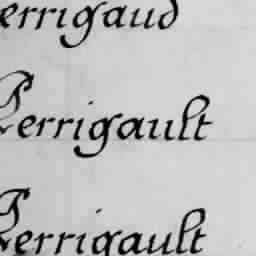 Perrigaud
Perrigault
Perrigault